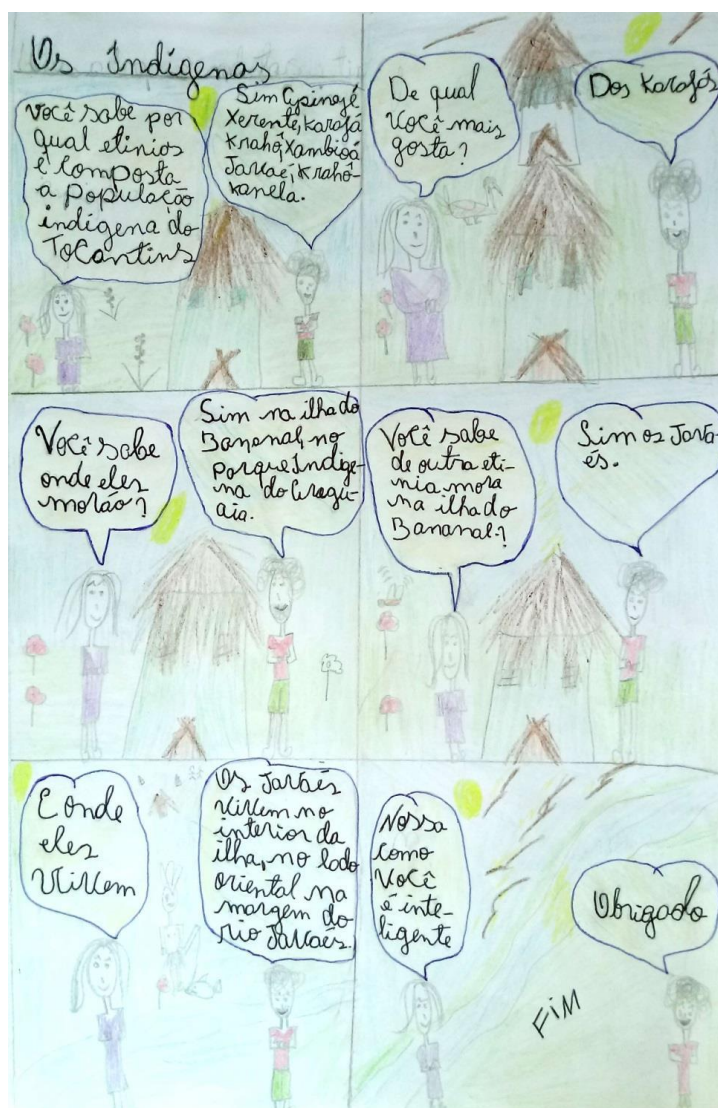 Os Indígenas
Você sabe por
qual etinios
é composta
a População
indígena do
Tocantins
Sim Apinajé
Xerente, Karajá
Krahô, Xambioá
Javaé, Krahô-
kanela.
De qual
você mais
gosta?
Dos Karajás
Você sabe
onde eles
morão?
Sim na ilha do
Bananal, no
Parque Indíge-
na do Aragu-
aia.
Você sabe
de outra eti-
nia mora
na ilha do
Bananal?
Sim os Java-
és.
E onde
eles
vivem
Os Javaés
vivem no
interior da
ilha, no lado
oriental na
margem do
rio Javaés
Nossa
como
você
é inte-
ligente
Obrigado
FIM